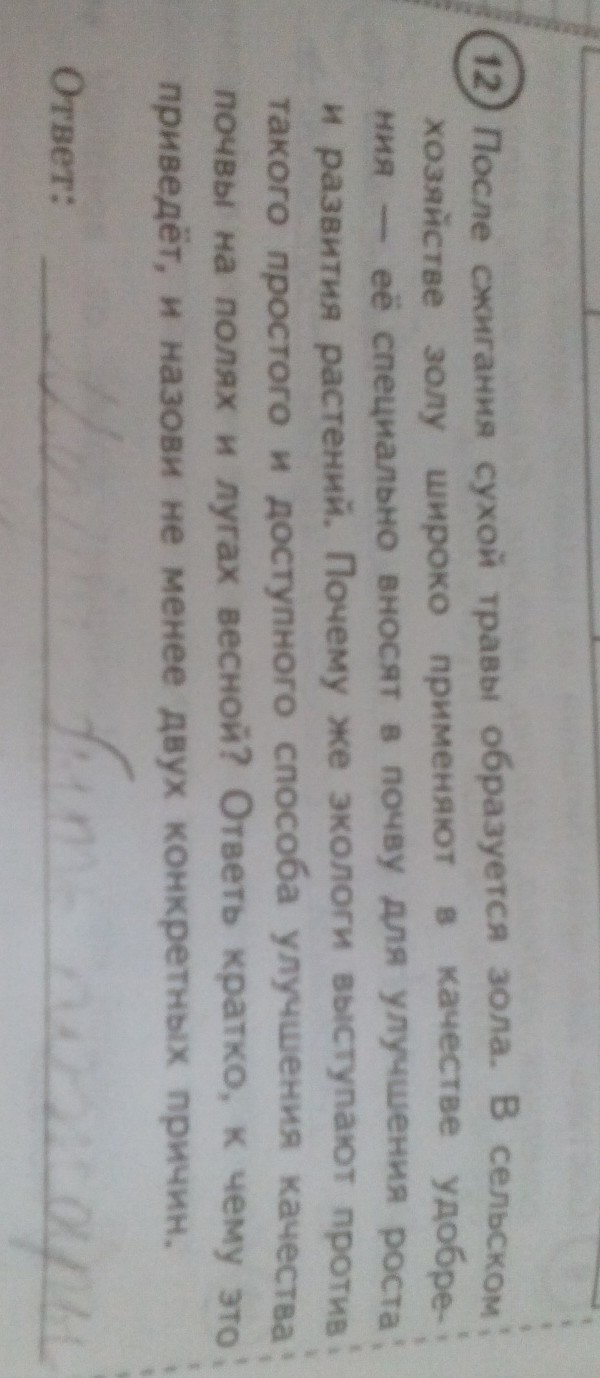 12 После сжигания сухой травы образуется зола. В сельском
хозяйстве золу широко применяют в качестве удобре-
ния — её специально вносят в почву для улучшения роста
и развития растений. Почему же экологи выступают против
такого простого и доступного способа улучшения качества
почвы на полях и лугах весной? Ответь кратко, к чему это
приведёт, и назови не менее двух конкретных причин.
Ответ: